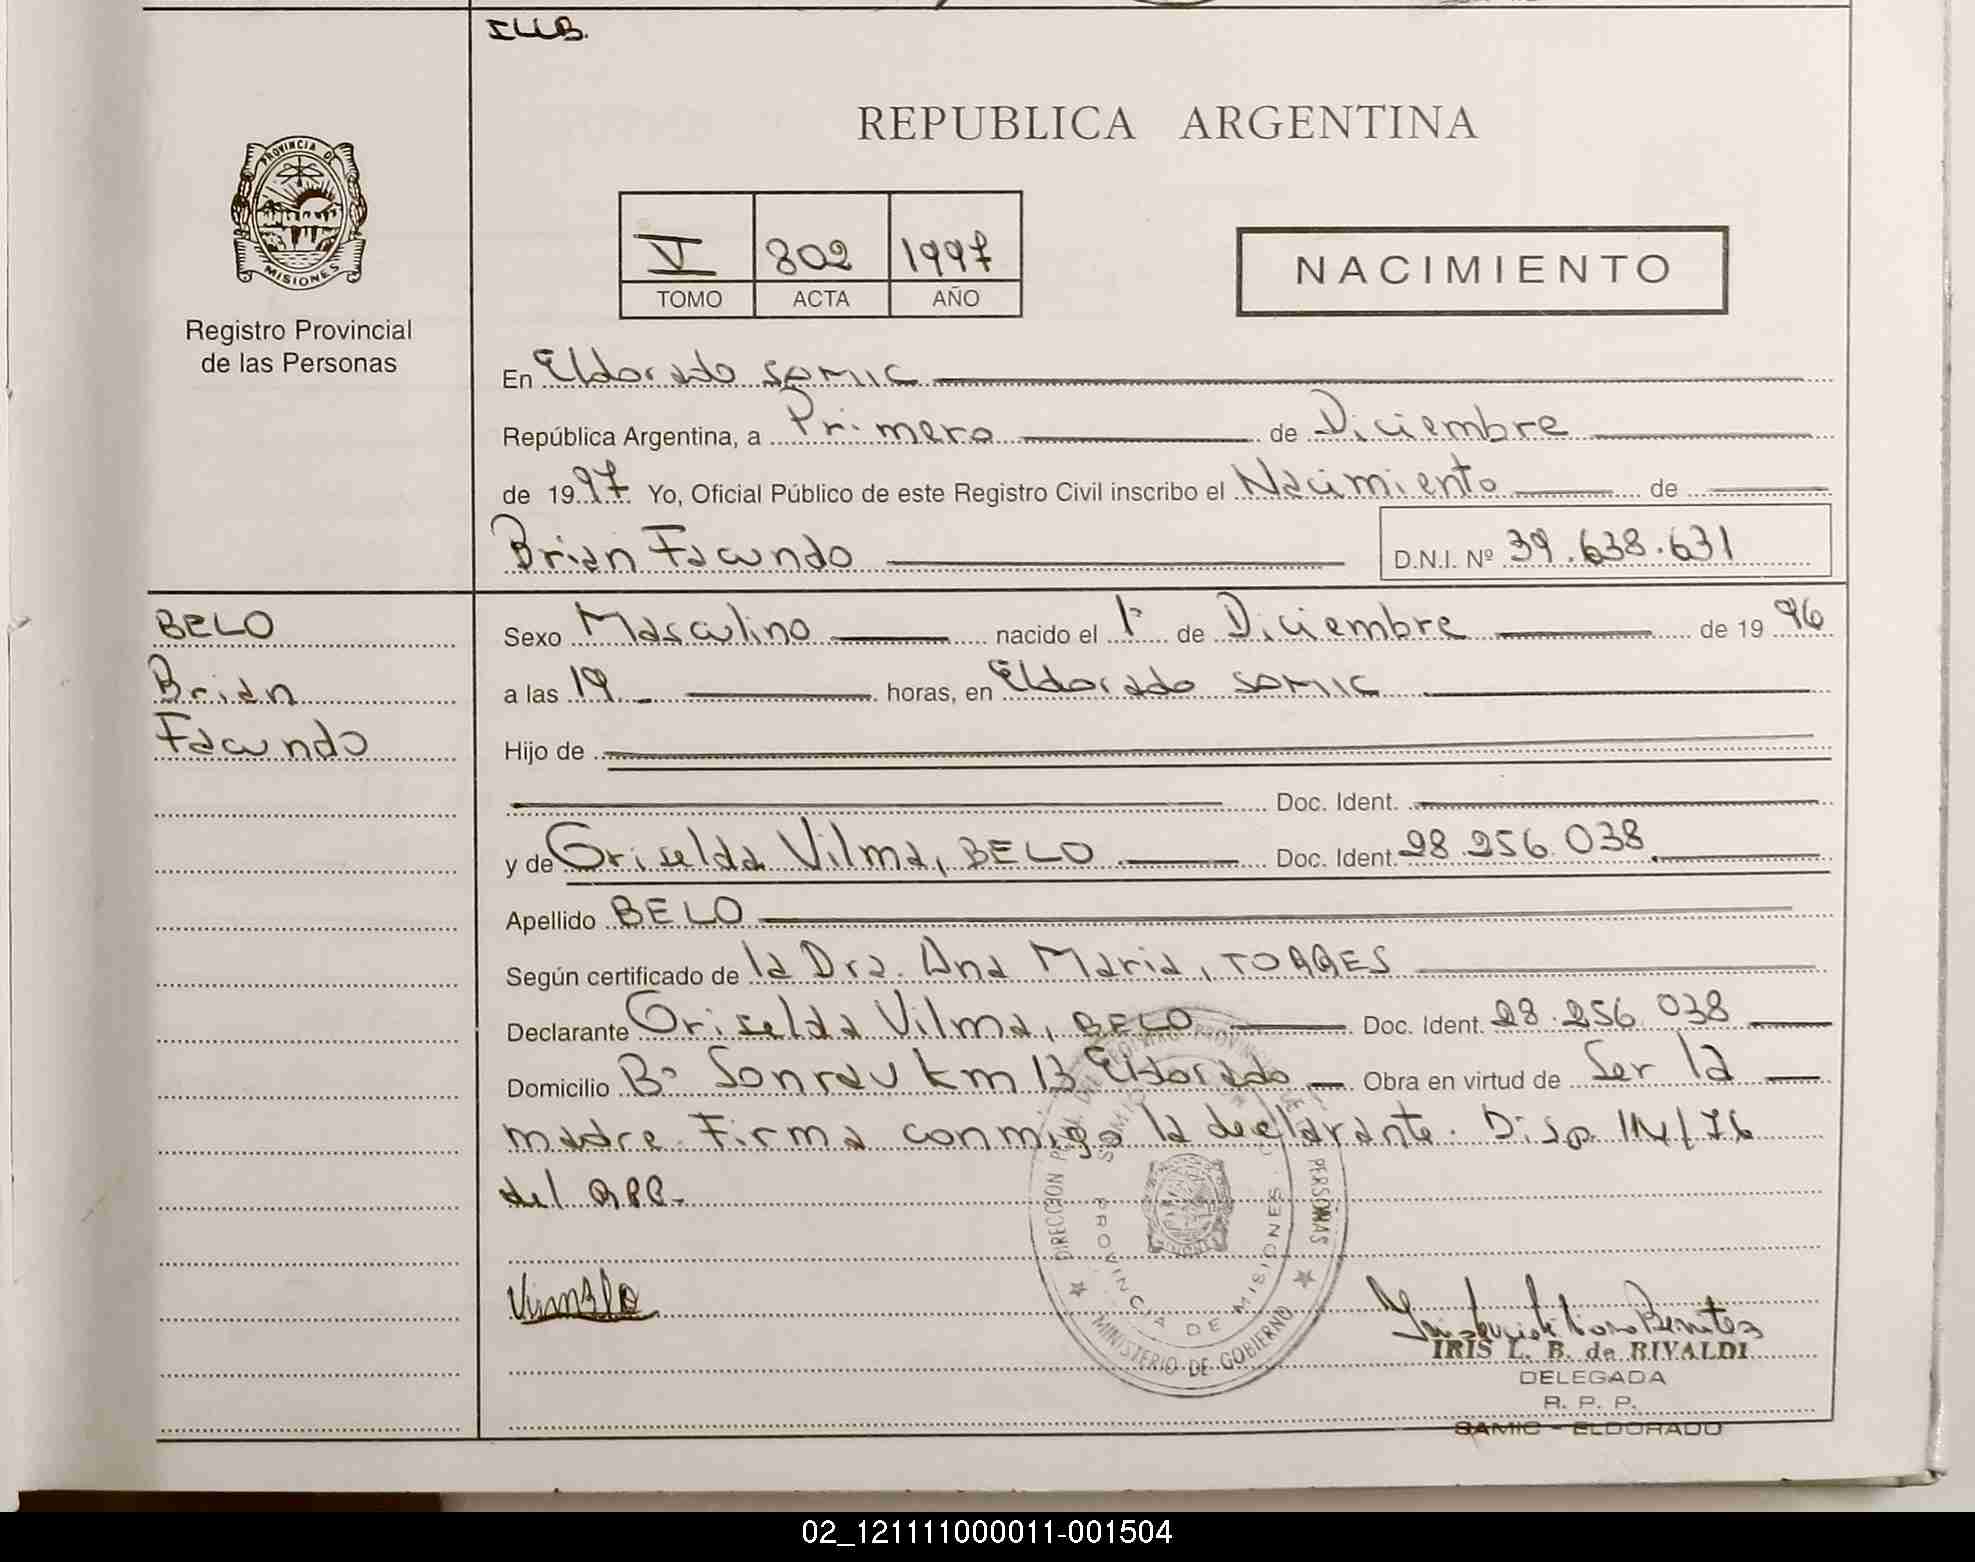 ILLB.
PROVINCIA DE
MISIONES
Registro Provincial
de las Personas
REPUBLICA ARGENTINA
V 802 1997
TOMO ACTA AÑO
NACIMIENTO
En Eldorado SAMIC
República Argentina, a Primero de Diciembre
de 1997 Yo, Oficial Público de este Registro Civil inscribo el Nacimiento de
Brian Facundo D.N.I. Nº 39.638.631
BELO
Brian
Facundo
Sexo Masculino nacido el 1º de Diciembre de 1996
a las 19 horas, en Eldorado SAMIC
Hijo de
Doc. Ident.
y de Griselda Vilma, BELO Doc. Ident. 28.256.038
Apellido BELO
Según certificado de la Dra. Ana Maria, TORRES
Declarante Griselda Vilma, BELO Doc. Ident. 28.256.038
Domicilio Bº Sonrau km 13 Eldorado Obra en virtud de Ser la
madre. Firma conmigo la declarante. Disp. 114/76
del RPP-
PROVINCIA DE MISIONES
MINISTERIO DE GOBIERNO
IRIS L. B. de RIVALDI
DELEGADA
R. P. P.
SAMIC - ELDORADO
02_121111000011-001504